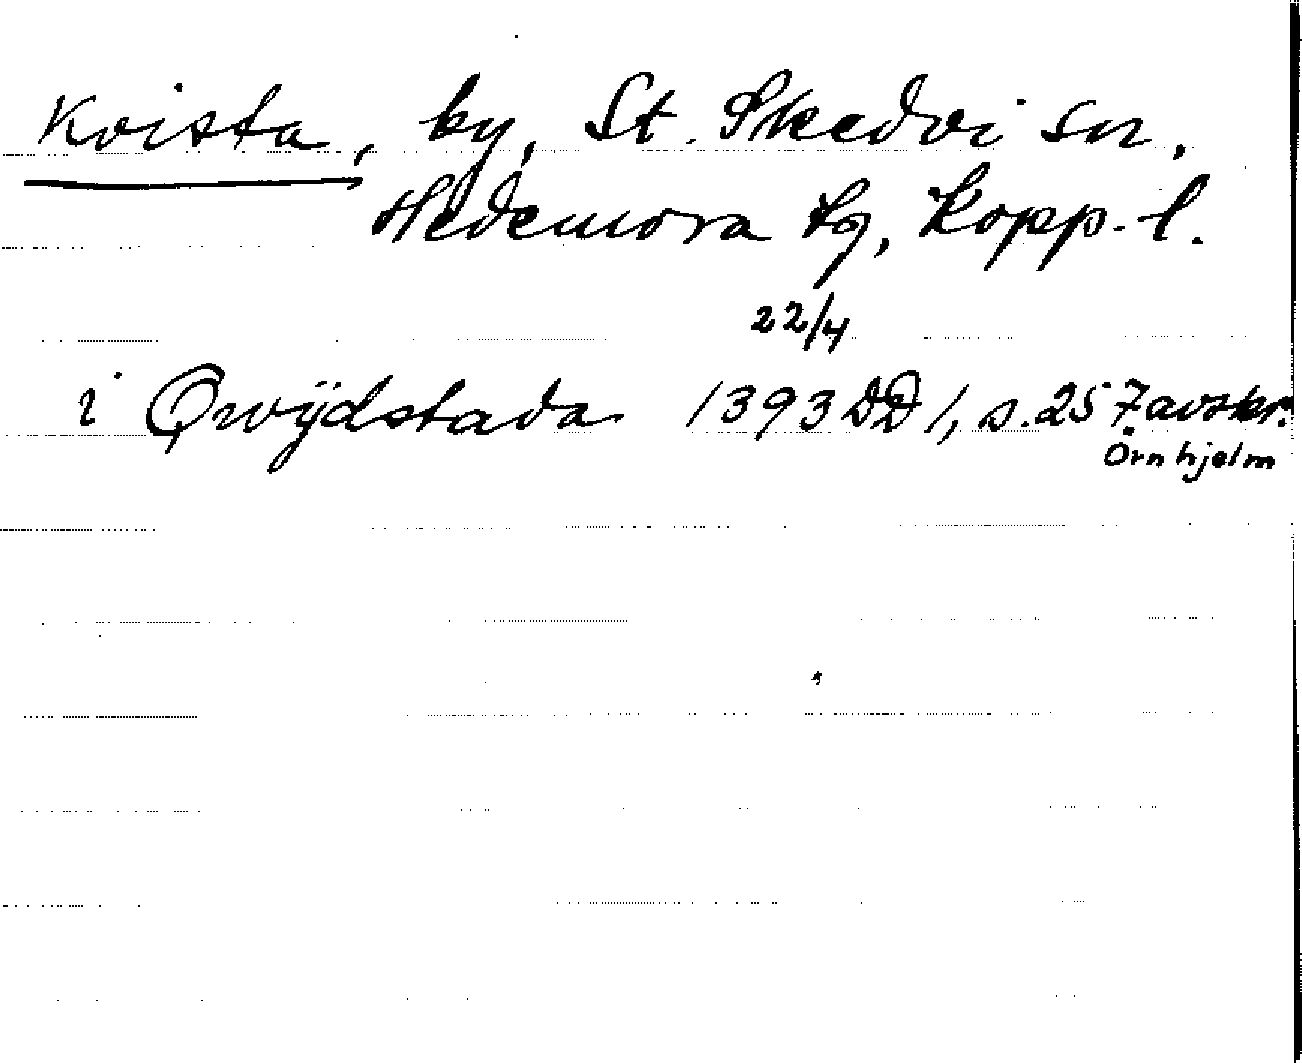 Kvista, by, St. Skedvi sn,
Hedemora tg, Kopp. l.
22/4
i Qwÿdstada 1393 DD 1, s. 257 avskr.
Örnhjelm